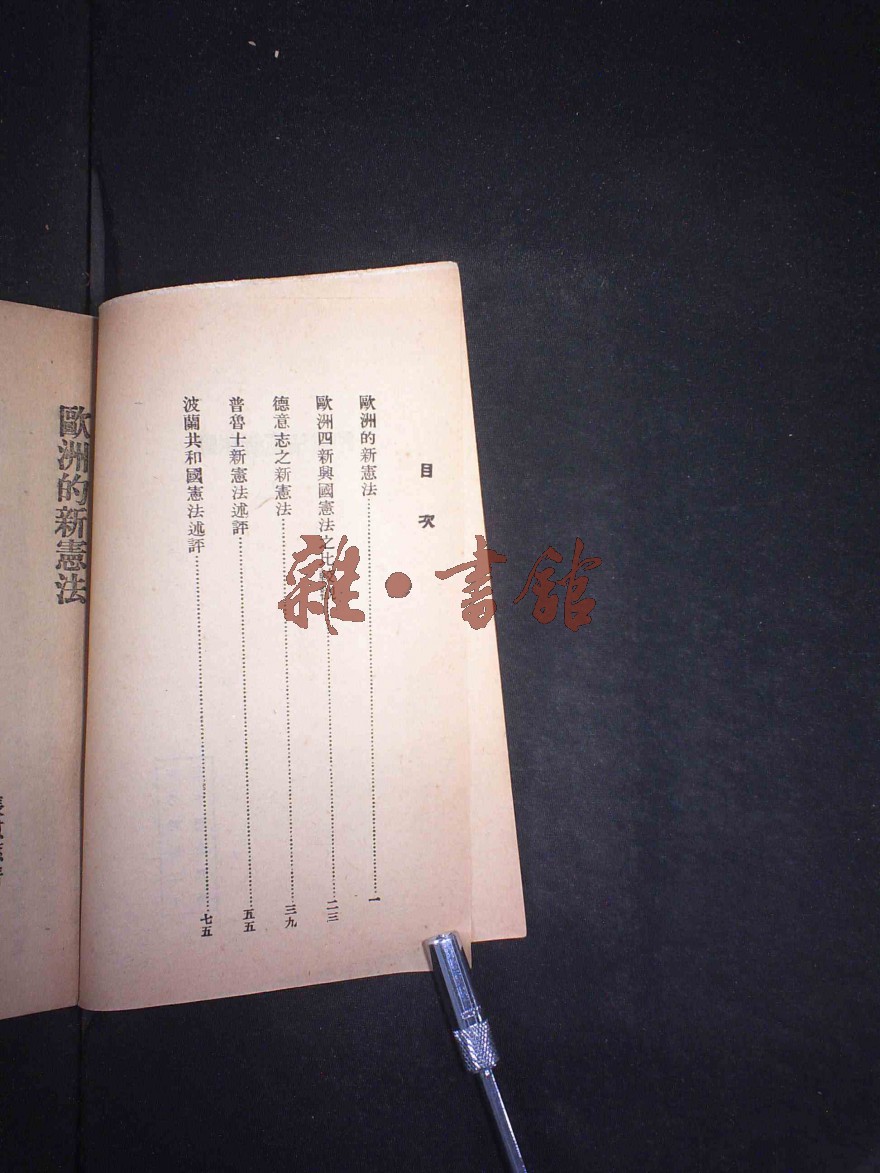 目次
歐洲的新憲法……一
歐洲四新興國憲法之比較……二三
德意志之新憲法……三九
普魯士新憲法述評……五五
波蘭共和國憲法述評……七五
歐洲的新憲法
雜·書館